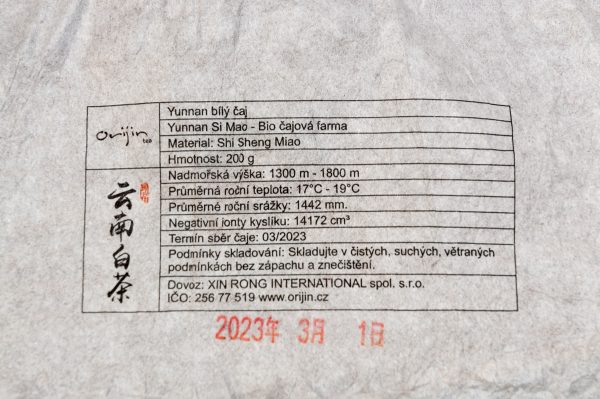 Orijin
tea
云南白茶
Yunnan bílý čaj
Yunnan Si Mao - Bio čajová farma
Material: Shi Sheng Miao
Hmotnost: 200 g
Nadmořská výška: 1300 m - 1800 m
Průměrná roční teplota: 17°C - 19°C
Průměrné roční srážky: 1442 mm.
Negativní ionty kyslíku: 14172 cm³
Termín sběr čaje: 03/2023
Podmínky skladování: Skladujte v čistých, suchých, větraných
podmínkách bez zápachu a znečištění.
Dovoz: XIN RONG INTERNATIONAL spol. s.r.o.
IČO: 256 77 519 www.orijin.cz
2023年 3月 1日